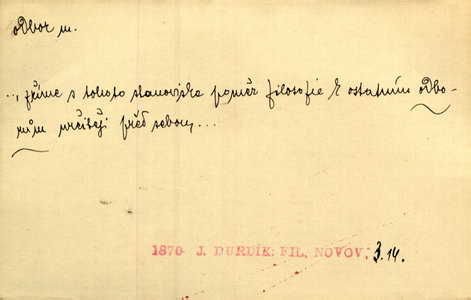 odbor m.
.., s tohoto stanoviska poměr filosofie k ostatním odbo-
rům určitěji před sebou,...
1870 J. DURDÍK: FIL. NOVOV. 3.14.